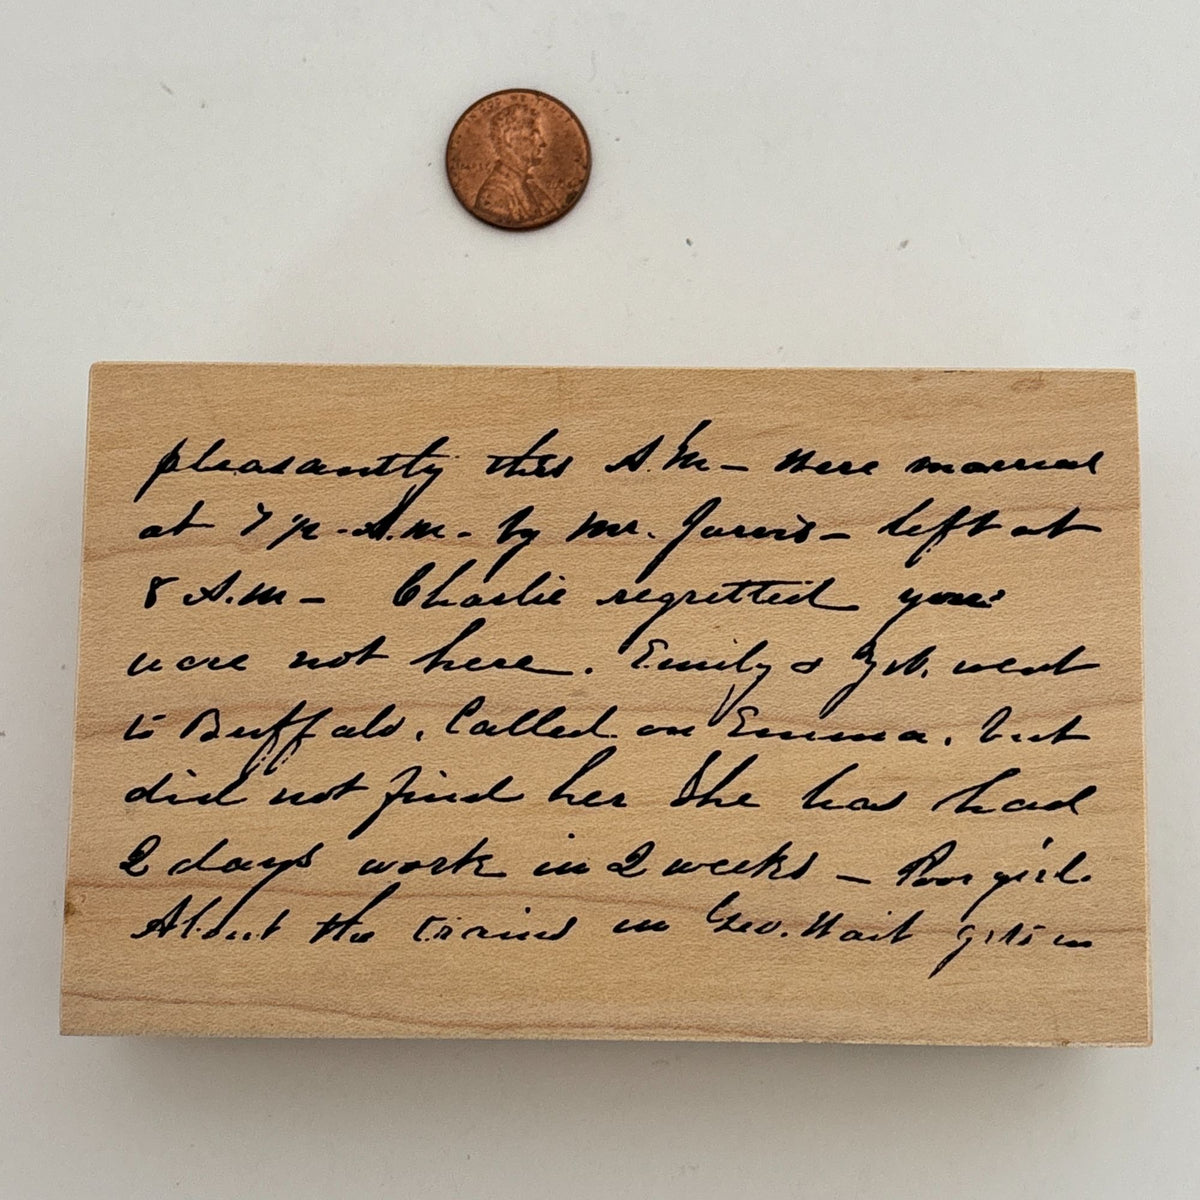 pleasantly this A.M – Were married
at 7 A.m. by Mr. Jarvis – left at
8 A.M – Charlie regretted you
were not here. Emily & went
to Buffalo. Called on Emma, but
did not find her She has had
2 days work in 2 weeks – Poor girl.
About the in Geo. Wait gets in